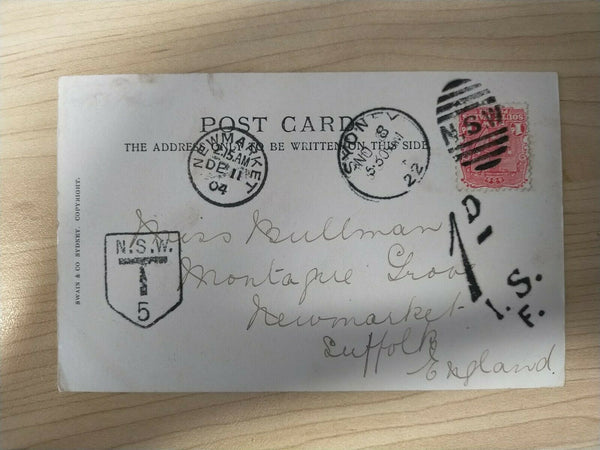 POST CARD
THE ADDRESS ONLY TO BE WRITTEN ON THIS SIDE
NEWMARKET
15.AM
DE 11
04
SYDNEY
NO 8
5.30 PM
22
NSW
N.S.W.
T
5
D
1 S.
1. F.
SWAIN & CO SYDNEY. COPYRIGHT.
Miss Bullman
Montague Grov
Newmarket
Suffolk
England